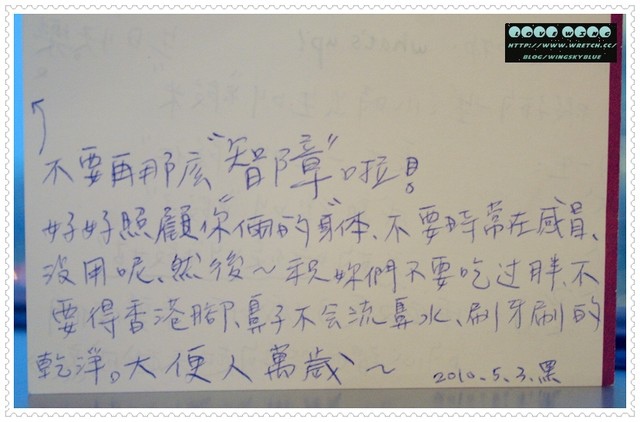 LOVE WING
HTTP://WWW.WRETCH.CC/
BLOG/WINGSKYBLUE
不要再那麼"智障"啦!
好好照顧你"倆的"身体、不要時常在感冒、
沒用呢、然後～祝妳們不要吃过胖、不
要得香港腳、鼻子不会流鼻水、刷牙刷的
乾淨。大便人萬歲～
2010.5.3.黑